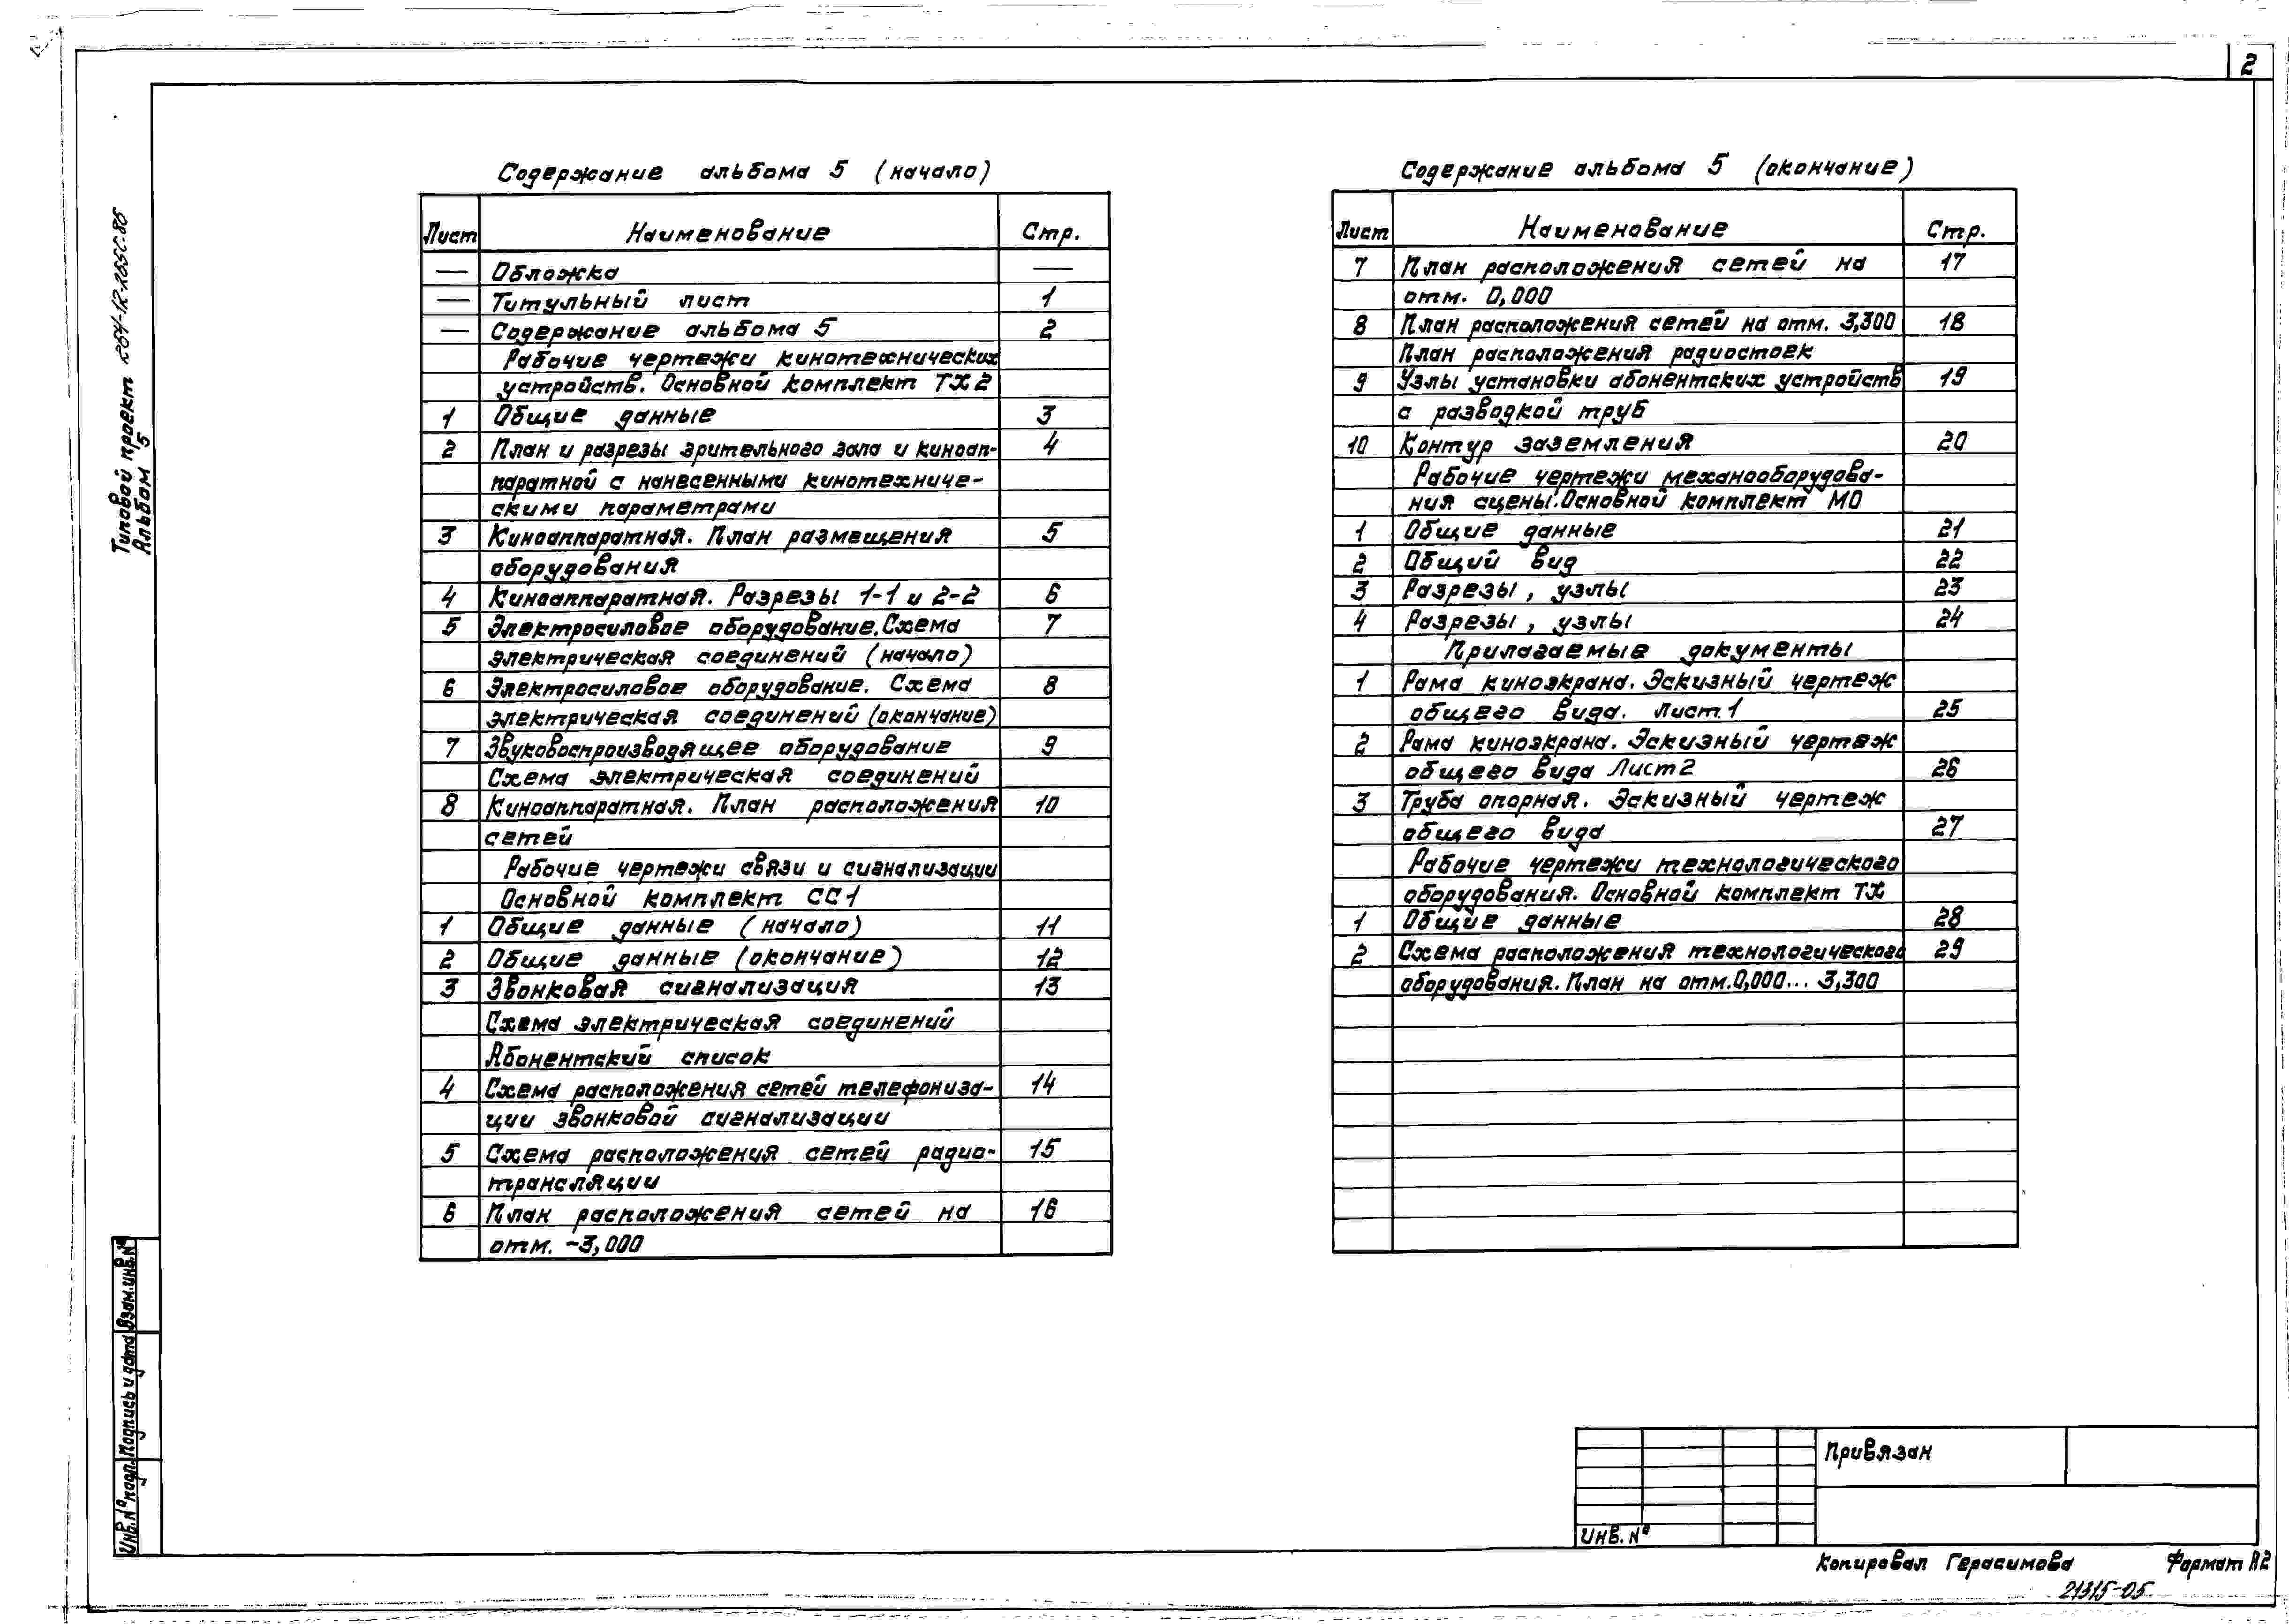 2
Типовой проект 264-12-265с.86
Альбом 5
Содержание альбома 5 (начало)
Лист Наименование Стр.
— Обложка —
— Титульный лист 1
— Содержание альбома 5 2
Рабочие чертежи кинотехнических
устройств. Основной комплект ТХ2
1 Общие данные 3
2 План и разрезы зрительного зала и киноап- 4
паратной с нанесенными кинотехниче-
скими параметрами
3 Киноаппаратная. План размещения 5
оборудования
4 Киноаппаратная. Разрезы 1-1 и 2-2 6
5 Электросиловое оборудование. Схема 7
электрическая соединений (начало)
6 Электросиловое оборудование. Схема 8
электрическая соединений (окончание)
7 Звуковоспроизводящее оборудование 9
Схема электрическая соединений
8 Киноаппаратная. План расположения 10
сетей
Рабочие чертежи связи и сигнализации
Основной комплект СС1
1 Общие данные (начало) 11
2 Общие данные (окончание) 12
3 Звонковая сигнализация 13
Схема электрическая соединений
Абонентский список
4 Схема расположения сетей телефониза- 14
ции звонковой сигнализации
5 Схема расположения сетей радио- 15
трансляции
6 План расположения сетей на 16
отм. -3,000
Содержание альбома 5 (окончание)
Лист Наименование Стр.
7 План расположения сетей на 17
отм. 0,000
8 План расположения сетей на отм. 3,300 18
План расположения радиостоек
9 Узлы установки абонентских устройств 19
с разводкой труб
10 Контур заземления 20
Рабочие чертежи механооборудова-
ния сцены. Основной комплект МО
1 Общие данные 21
2 Общий вид 22
3 Разрезы, узлы 23
4 Разрезы, узлы 24
Прилагаемые документы
1 Рама киноэкрана. Эскизный чертеж
общего вида. Лист.1 25
2 Рама киноэкрана. Эскизный чертеж
общего вида Лист 2 26
3 Труба опорная. Эскизный чертеж
общего вида 27
Рабочие чертежи технологического
оборудования. Основной комплект ТХ
1 Общие данные 28
2 Схема расположения технологического 29
оборудования. План на отм. 0,000... 3,300
Инв. № подл. Подпись и дата Взам. инв. №
Привязан
Инв. №
Копировал Герасимова Формат А2
21315-05